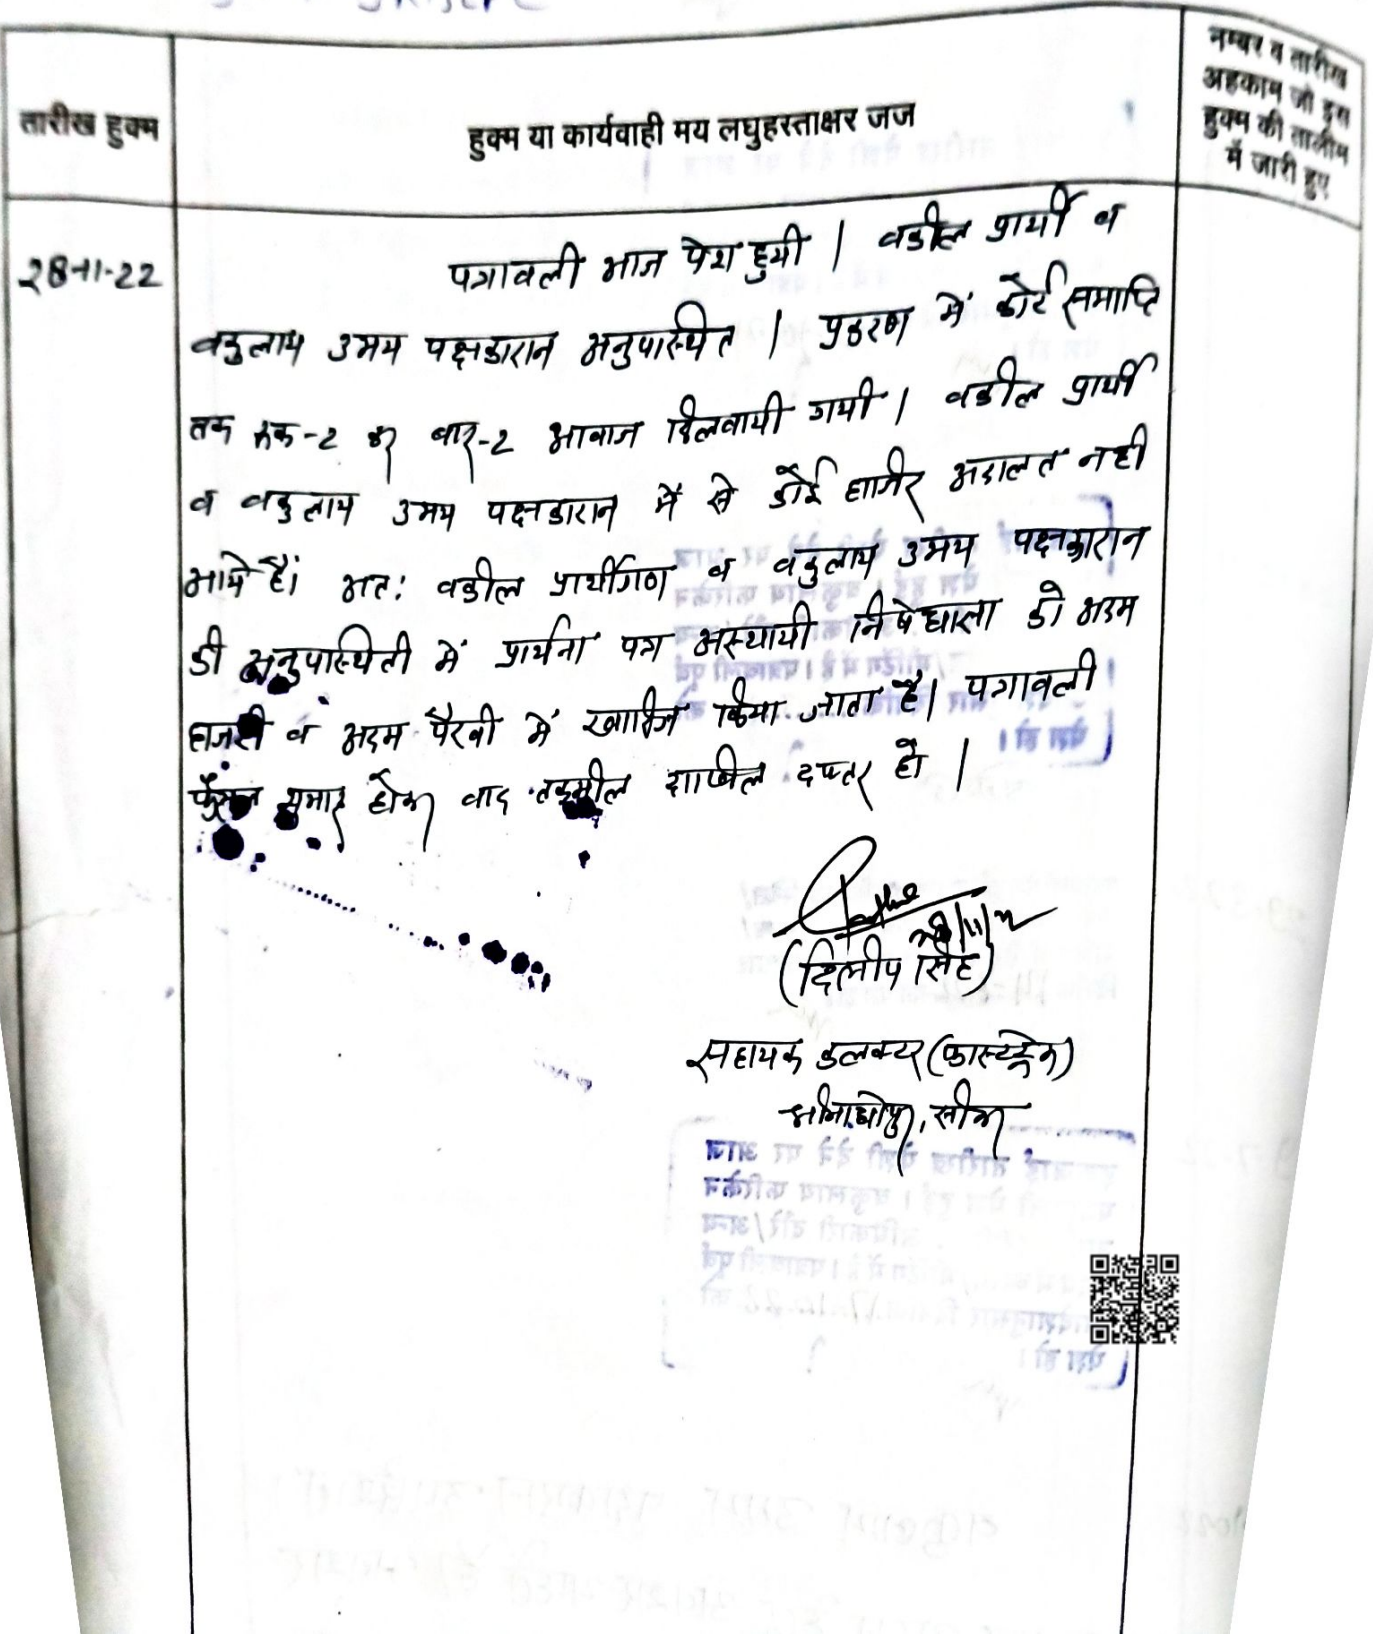 तारीख हुक्म
हुक्म या कार्यवाही मय लघुहस्ताक्षर जज
नम्बर व तारीख
अहकाम जो इस
हुक्म की तालीम
में जारी हुए
28-11-22
पत्रावली आज पेश हुयी । वकील प्रार्थी व
वकुलाय उभय पक्षकारान अनुपस्थित । प्रकरण में कोर्ट समाप्ति
तक रुक-2 कर बार-2 आवाज दिलवायी गयी । वकील प्रार्थी
व वकुलाय उभय पक्षकारान में से कोई हाजिर अदालत नही
आये है। अत: वकील प्रार्थीगण व वकुलाय उभय पक्षकारान
की अनुपास्थिती में प्रार्थना पत्र अस्थायी निषेधाज्ञा को अदम
हाजरी व अदम पैरवी में खारिज किया जाता है। पत्रावली
फैसल शुमार होकर बाद तकमील दाखिल दफ्तर हो ।
28/11/22
(दिलीप सिंह)
सहायक कलक्टर (फास्टट्रेक)
श्रीमाधोपुर, सीकर